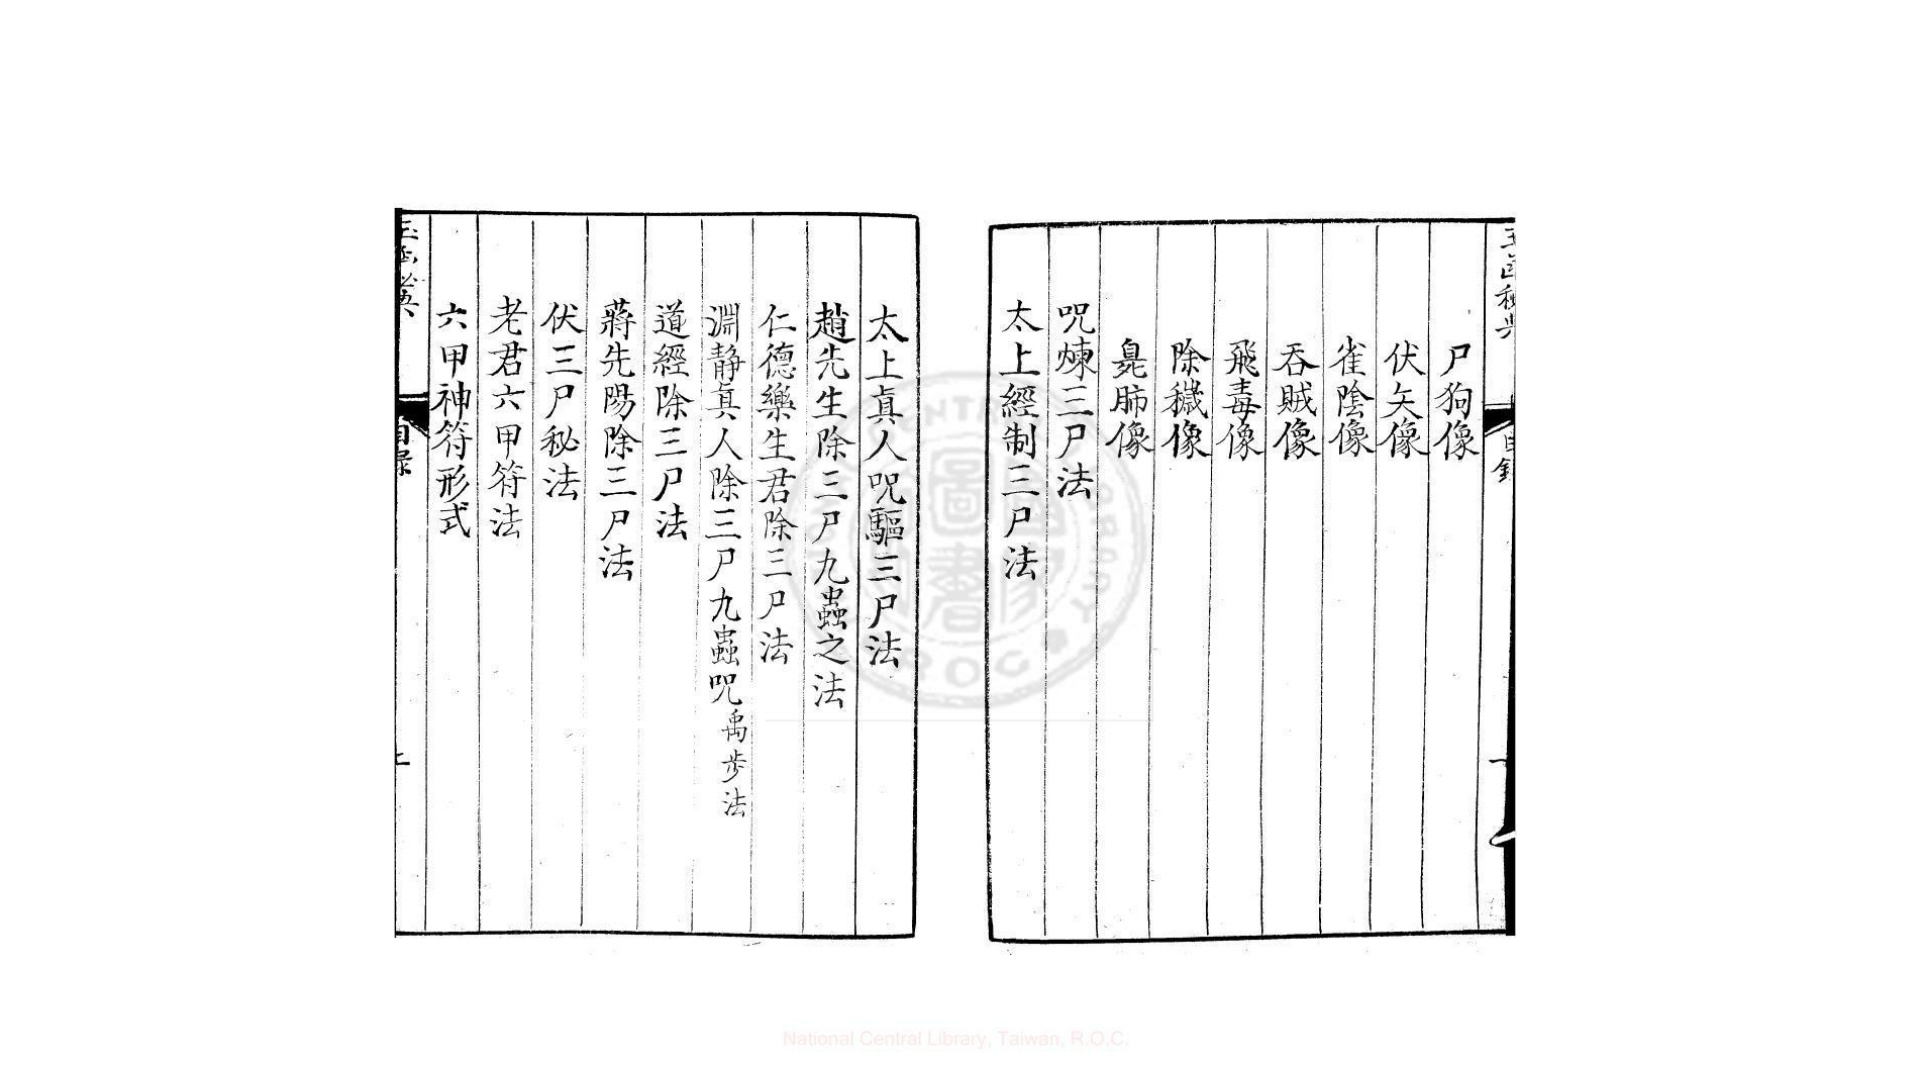 玉函秘典
目錄
尸狗像
伏矢像
雀陰像
吞賊像
飛毒像
除穢像
臭肺像
咒煉三尸法
太上經制三尸法
太上眞人咒驅三尸法
趙先生除三尸九蟲之法
仁德樂生君除三尸法
淵靜眞人除三尸九蟲咒 禹步法
道經除三尸法
蔣先陽除三尸法
伏三尸秘法
老君六甲符法
六甲神符形式
目錄
National Central Library, Taiwan, R.O.C.